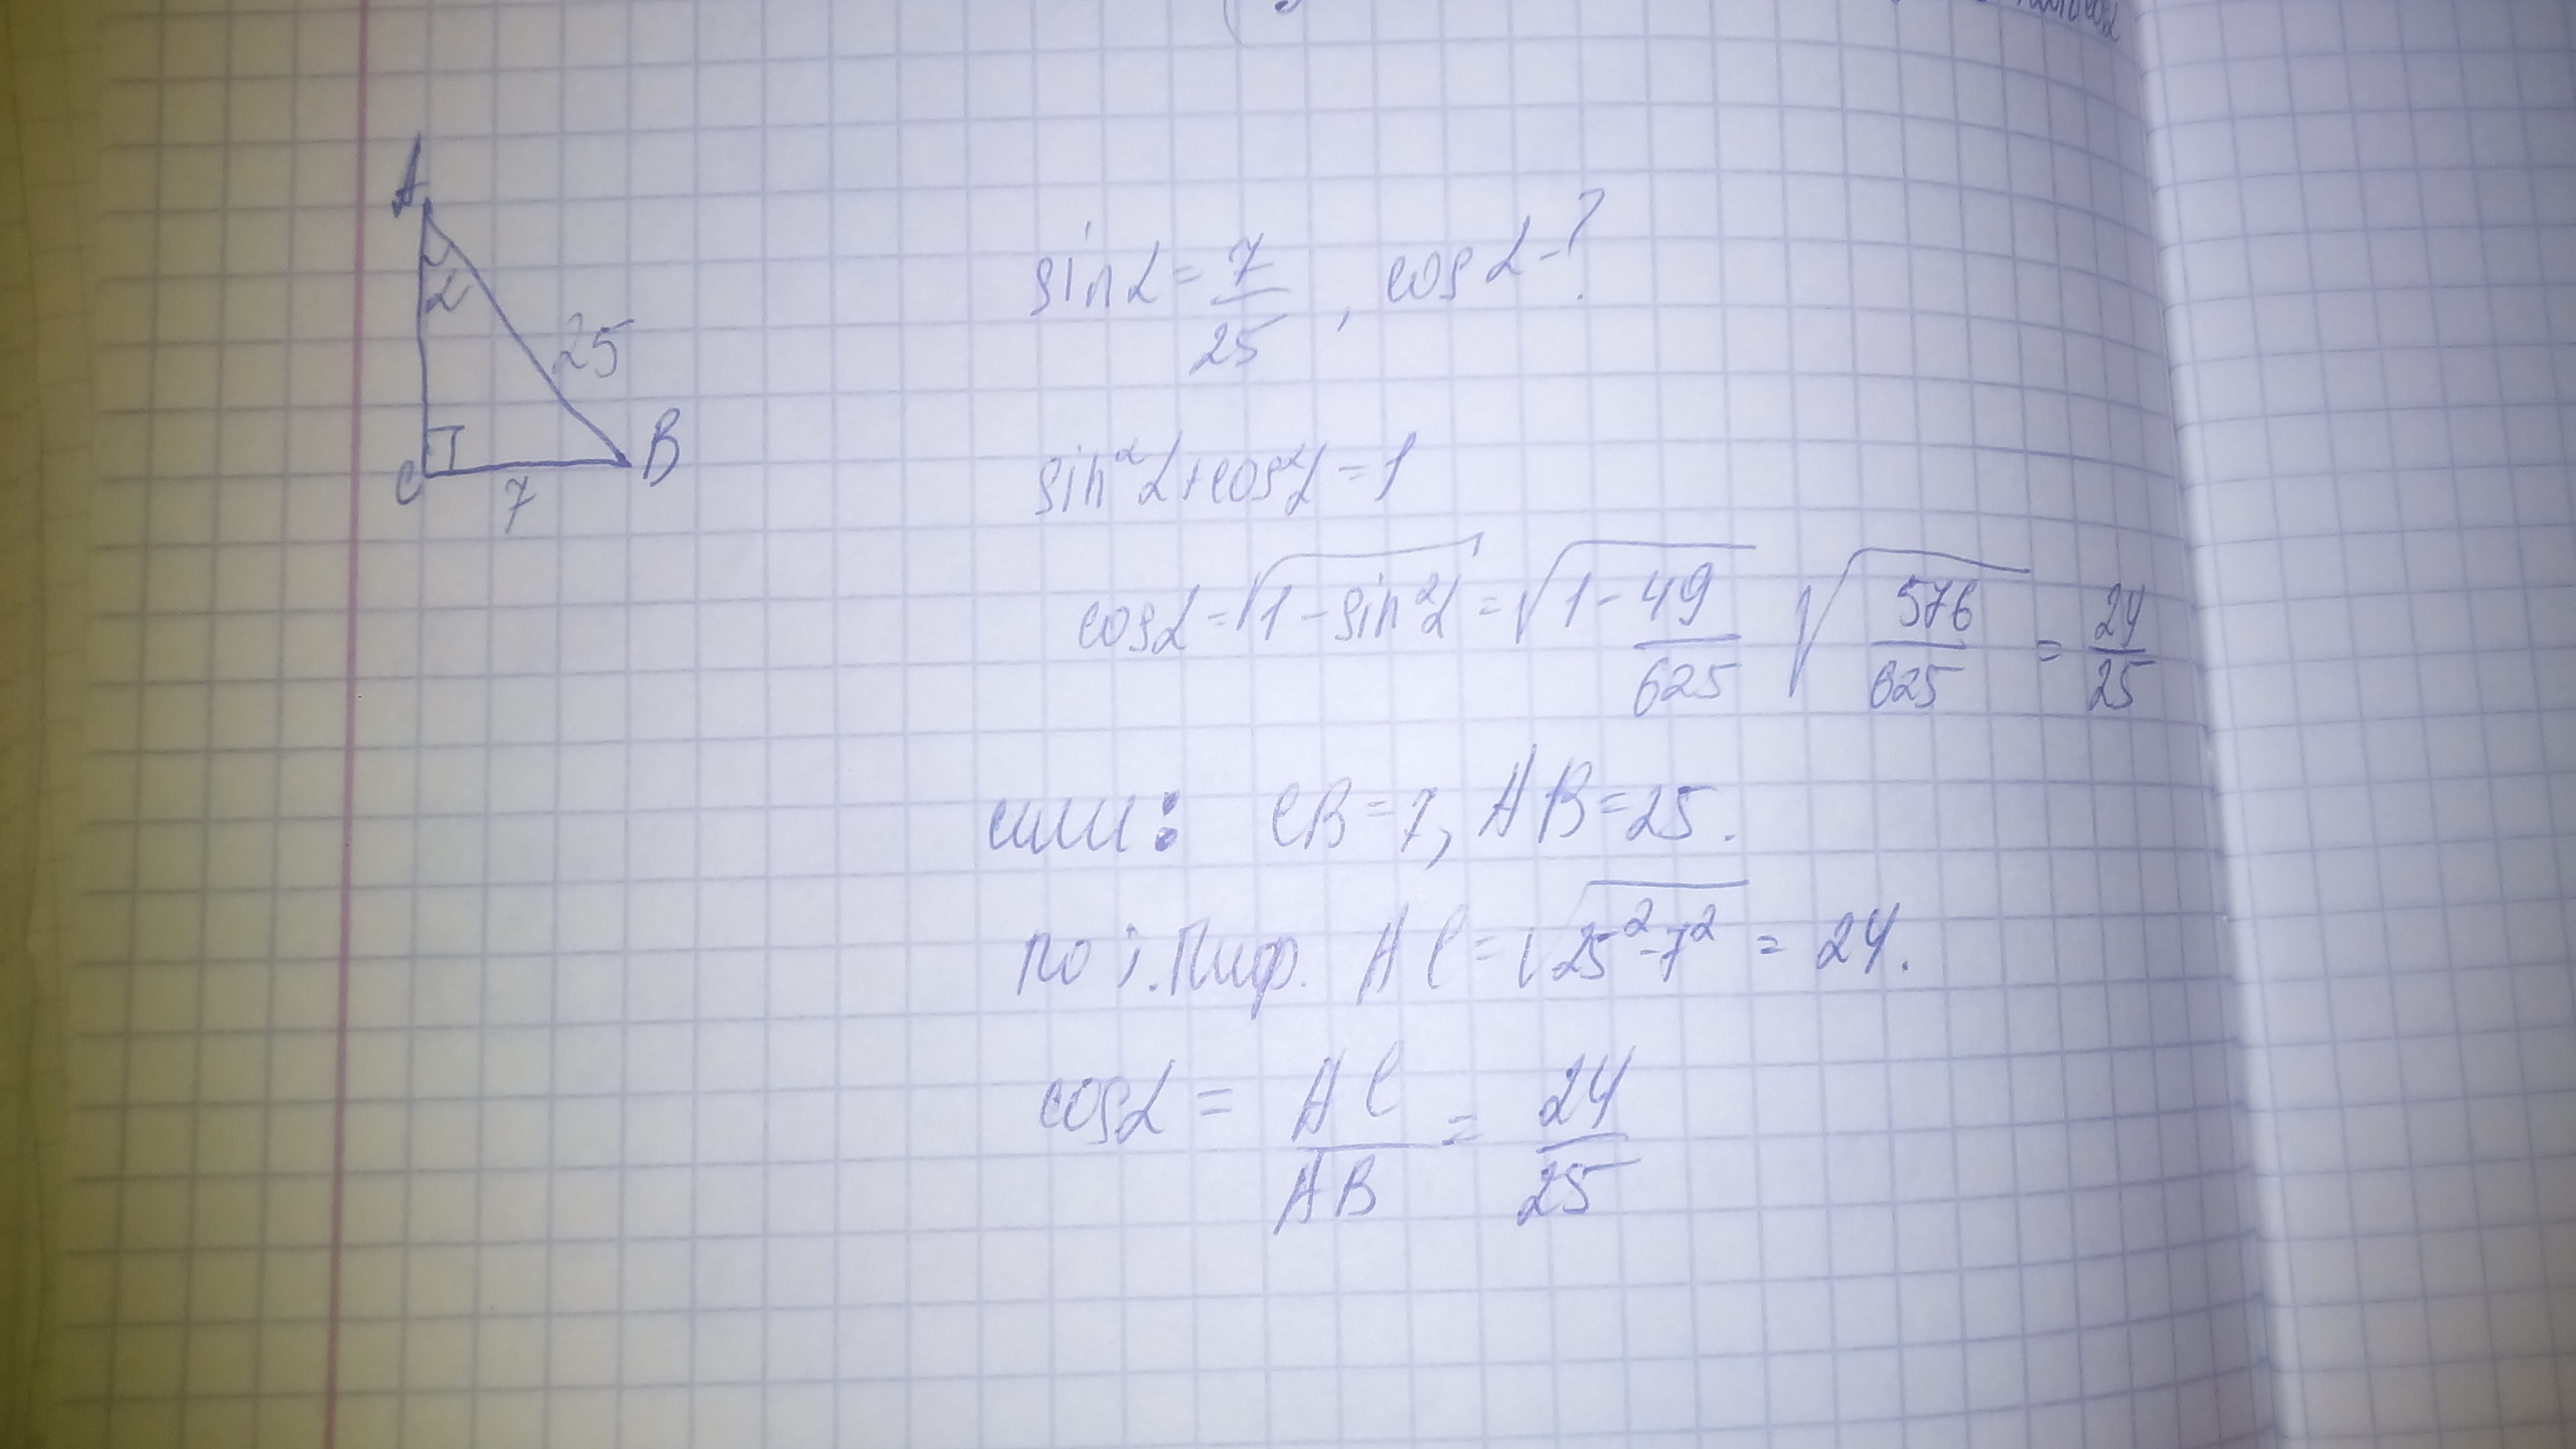 A
α
25
C
B
7
sinα = 7/25, cosα - ?
sin²α + cos²α = 1
cosα = √(1 - sin²α) = √(1 - 49/625) √(576/625) = 24/25
или: CB = 7, AB = 25.
по т. Пиф. AC = √(25² - 7²) = 24.
cosα = AC/AB = 24/25